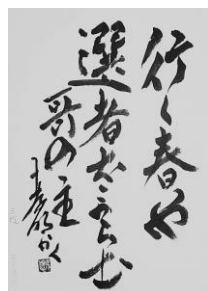 行く春や
選者をうらむ
哥の主